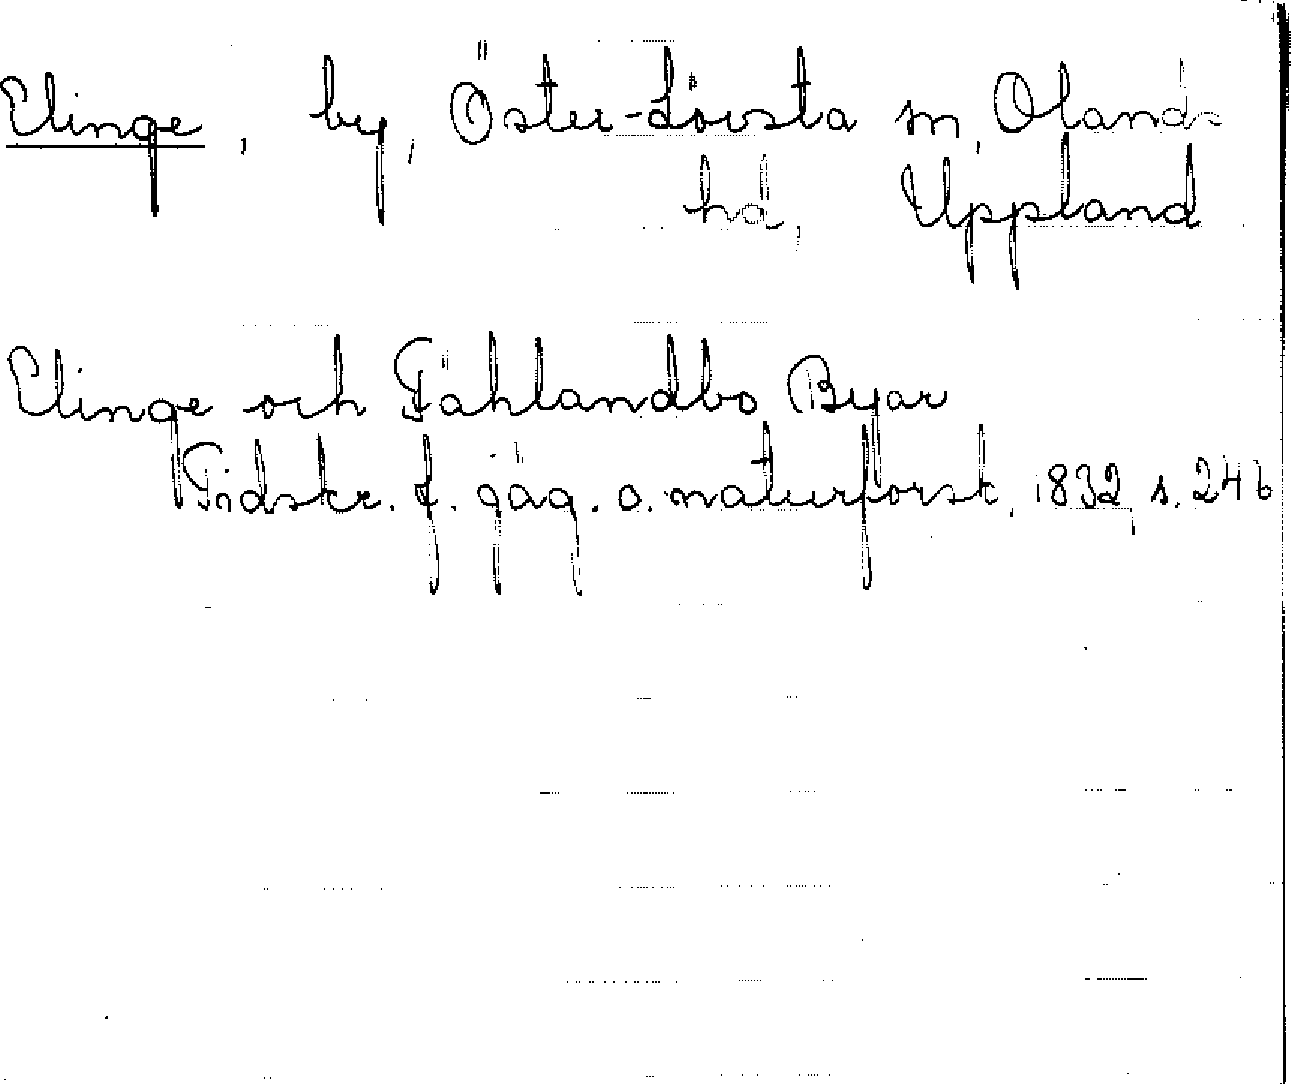 Elinge, by, Öster-Lövsta sn, Olands
hd, Uppland
Elinge och Fählandbo Byar
Tidskr. f. jäg. o. naturforsk, 1832, s. 246